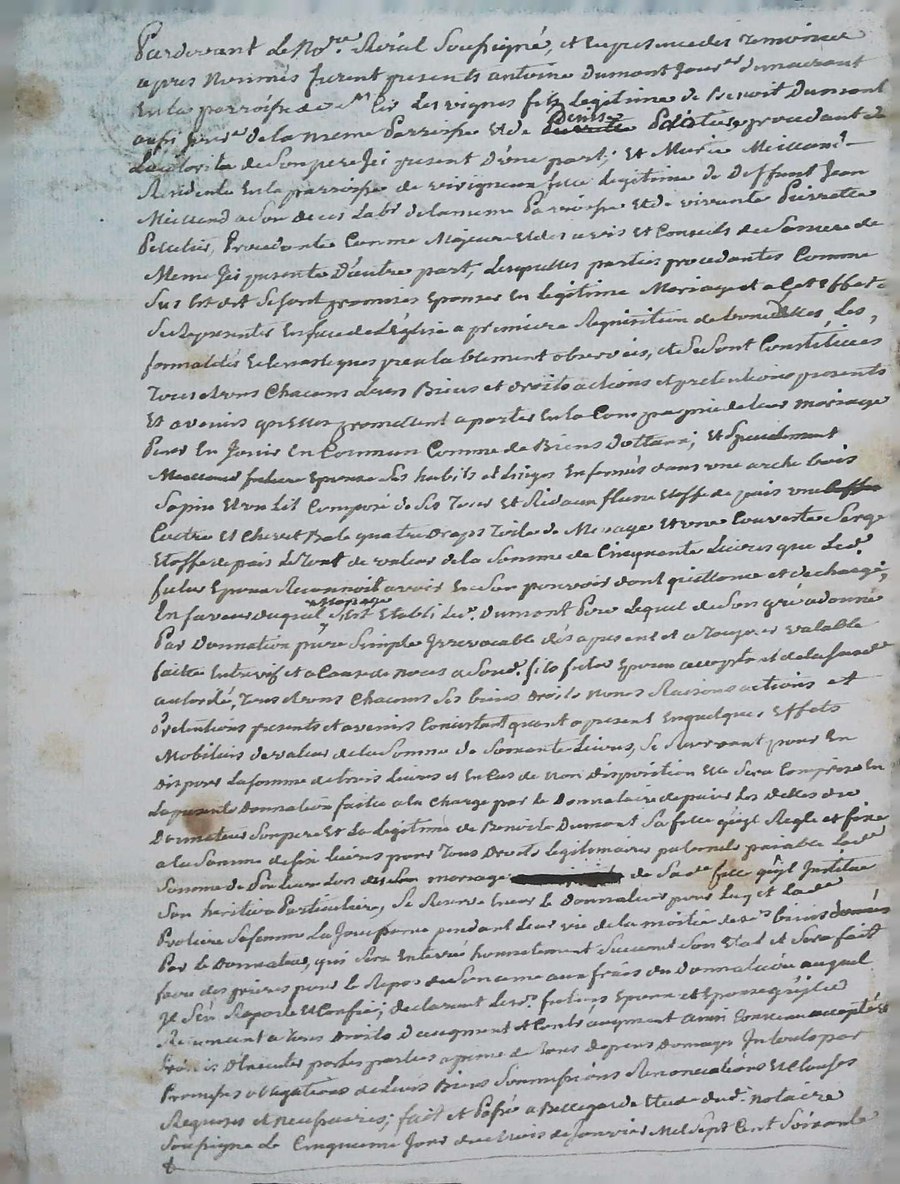 Pardevant le No.re Roial Soussigné, et en presence des Temoins
apres Nommés furent presents antoine Dumont Jour.er demeurant
En la parroisse de S.t Cir Les vignes fils Legitime de Benoit Dumont
aussi Jour.er de la meme Parroisse Et de Denise procedant de
Lautorite de Son pere Jci present D'une part; Et Marie Meilland
Residente En la parroisse de fille legitime de Deffunt Jean
Meilland a Son deces Lab.r de la meme Parroisse Et de vivante Pierrette
Procedante Comme Majeure Et des avis et Conseils de Sa mere de
Meme Jci presente D'autre part, Lesquelles parties procedantes Comme
Sus Est dit Se sont promises Epouser En legitime Mariage et a Cet Effet
Se Representer En face de L'Eglise a premiere Requisition de L'une Les
formalités Eclesiastiques prealablement observées, et Se Sont Constituées
Tous et Uns Chacuns Leurs Biens et droits actions et pretentions presents
Et avenirs qu'elles promettent aporter En la Compagnie de leur mariage
Pour En Jouir En Commun Comme de Biens Dottaux; Et Specialement
future Epouse Ses habits et linges Enfermés dans une arche bois
Sapin Et un Lit Composé de Ses Tour Et Rideaux fleuret Etoffe de païs une
Cuetre Et Chevet Bale quatre Draps Toile de Menage Et une Couverte Serge
Etoffe de païs Le Tout de valeur de la Somme de Cinquante Livres que Led.
futur Epoux Reconnoit avoir En Son pouvoir dont quittance et decharge,
En faveur duquel mariage S'est Etabli Le S.r Dumont Pere Lequel de Son gré a donné
Par Donnation pure Simple Jrrevocable dés apresent et a Toujours valable
faite Entre vifs et a Cause de noces a Soud. fils futur Epoux acceptant de la susd.
autorité, Tous et Uns Chacuns Ses biens Droits noms Raisons actions et
pretentions presents et avenirs Consistant quant apresent En quelques Effets
Mobiliers de valeur de la Somme de Soixante Livres, Se Reservant pour En
disposer La somme de trois Livres et En Cas de non Disposition Elle Sera Comprise En
La presente Donnation faite a la Charge par le Donnataire de paier Les dettes du
Donnateur Son pere Et La legitime de Benoite Dumont Sa fille qu'il Regle et fixe
a la Somme de six Livres pour Tous Droits Legitimaires paternels payable Lad.
Somme de Six Livres Lors de Son mariage de Sad. fille qu'il Jnstitue
Son heritiere Particuliere, Se Reserve Encor le Donnateur pour Luy et Lad.
Sa femme La Jouissance pendant Leur vie de la moitié des d. biens donnés
Par le Donnateur, qui Sera Enterré honnetement Suivant Son Etat et Sera fait
faire des prieres pour le Repos de Son ame aux fraix du Donnataire auquel
Jl S'En Raporte Et Confie; declarant Les d. futurs Epoux et Epouse qu'ils
Renoncent a Tous Droits D'augment et Contr'augment ainsi Convenu accepté
Promis Et Stipulé par les parties a peine de Tous depens Domages Jnterets par
Promesses obligations de Leurs Biens Soumissions Renonciations Et Clauses
Requises et necessaires; fait et Passé a Bellegarde Etude du d. notaire
Soussigné Le Cinquieme Jour du Mois de Janvier Mil Sept Cent Soixante